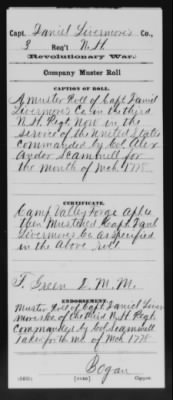 Capt. Daniel Livermore's Co.,
3 Reg't N.H.
Revolutionary War.
Company Muster Roll
CAPTION OF ROLL.
A Muster Roll of Capt Daniel
Livermore's Co in the third
N.H. Regt Now in the
service of the United States
commanded by Col Alex
ander Scammell for
the Month of Mch 1778.
CERTIFICATE.
Camp Valley Forge Apl 4
then Mustered Capt Danl
Livermore's Co as specified
in the Above roll
T. Green D. M. M.
ENDORSEMENT.
Muster Roll of Capt Daniel Liver
more's Co of the third N.H. Regt
Commanded by Col Scammell
Taken for the Mo of Mch 1778
Bogan
Copyist.